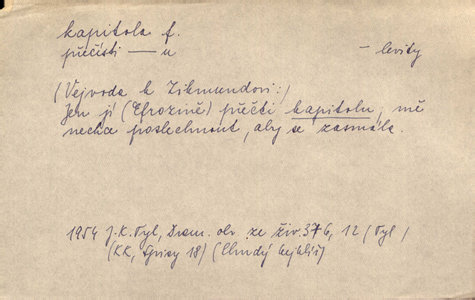 kapitola f.
přečísti — u – levity
(Vejvoda k Zikmundovi:)
Jen jí (Efrozině) přečti kapitolu, mě
nechá poslechnout, aby se zasmála.
1954 J.K.Tyl, Dram. obr. ze živ. 376, 12 (Tyl)
(KK, Spisy 18) (Chudý kejklíř)